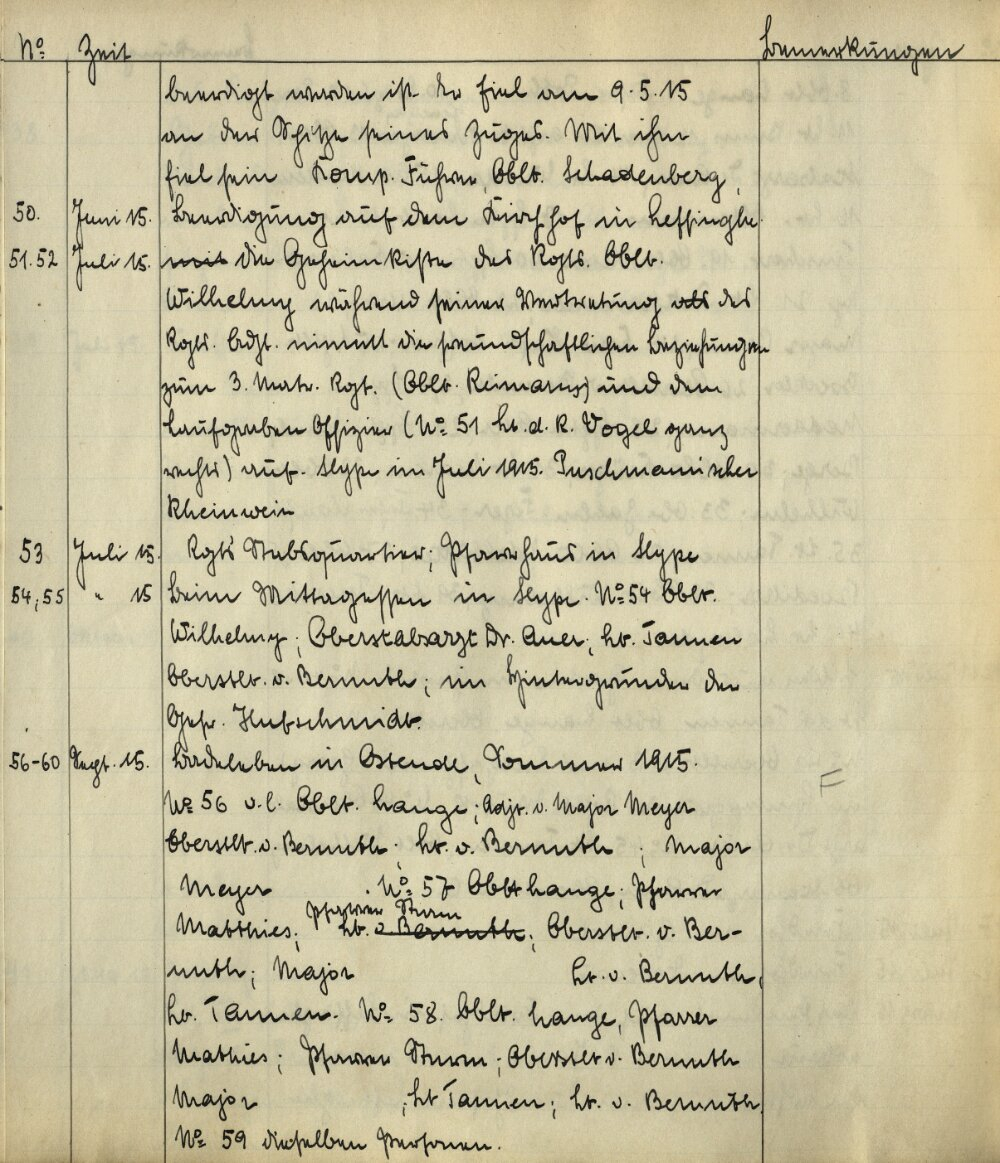 No Zeit Bemerkungen
beerdigt worden ist der fiel am 9.5.15
an der Spitze seines Zuges. Mit ihm
fiel sein Komp. Führer Oblt. Schadenberg,
50. Juni 15. Beerdigung auf dem Kirchhof in Leffinghe
51.52 Juli 15. die Geheimkiste des Rgts. Oblt.
Wilhelmy während seiner Vertretung als des
Rgts. Adjt. nimmt die freundschaftlichen Beziehungen
zum 3. Matr. Rgt. (Oblt. Reimarus) und dem
Laufgraben Offizier (No 51 Lt. d. R. Vogel ganz
rechts) auf. Slype im Juli 1915. Puschmanischer
Rheinwein
53 Juli 15. Rgts Stabsquartier; Pfarrhaus in Slype
54,55 " 15 Beim Mittagessen in Slype. No 54 Oblt.
Wilhelmy; Oberstabsarzt Dr. Auer; Lt. Tannen
Oberstlt. v. Bernuth; im Hintergrunde der
Gefr. Hufschmidt.
56-60 Sept. 15. Badeleben in Ostende, Sommer 1915.
No 56 v.l. Oblt. Lange; Adjt. v. Major Meyer
Oberstlt. v. Bernuth; Lt. v. Bernuth; Major
Meyer. No 57 Oblt Lange; Pfarrer
Matthies; Pfarrer Sturm Lt. v Bernuth; Oberstlt. v. Ber-
nuth; Major Lt. v. Bernuth,
Lt. Tannen. No 58. Oblt. Lange, Pfarrer
Mathies; Pfarrer Sturm; Oberstlt v. Bernuth
Major ; Lt Tannen; Lt. v. Bernuth,
No 59 dieselben Personen.